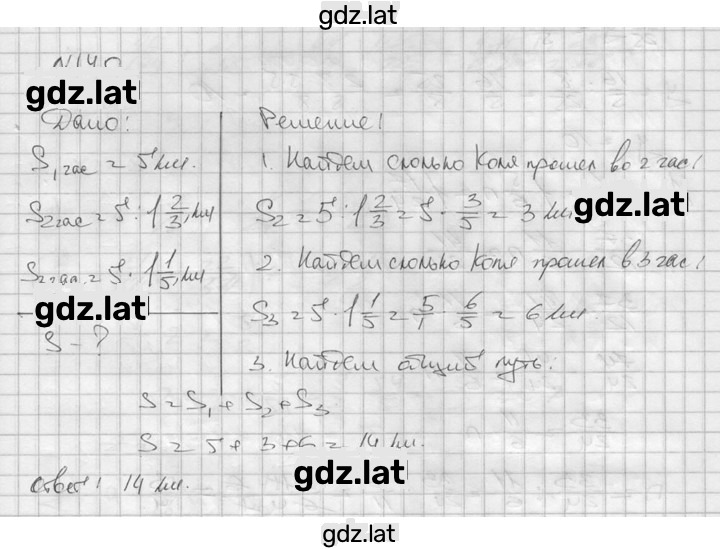 gdz.lat
gdz.lat
Дано:
S₁ час = 5 км.
S₂ час = 5 : 1 2/3, км
5 · 1 1/5, км
gdz.lat
S - ?
Решение:
1. Найдем сколько Коля прошел во 2 час:
S₂ = 5 : 1 2/3 = 5 · 3/5 = 3 км
gdz.lat
2. Найдем сколько Коля прошел в 3 час:
S₃ = 5 · 1 1/5 = 5/1 · 6/5 = 6 км.
3. Найдем общий путь:
S = S₁ + S₂ + S₃
S = 5 + 3 + 6 = 14 км.
gdz.lat
Ответ: 14 км.
gdz.lat